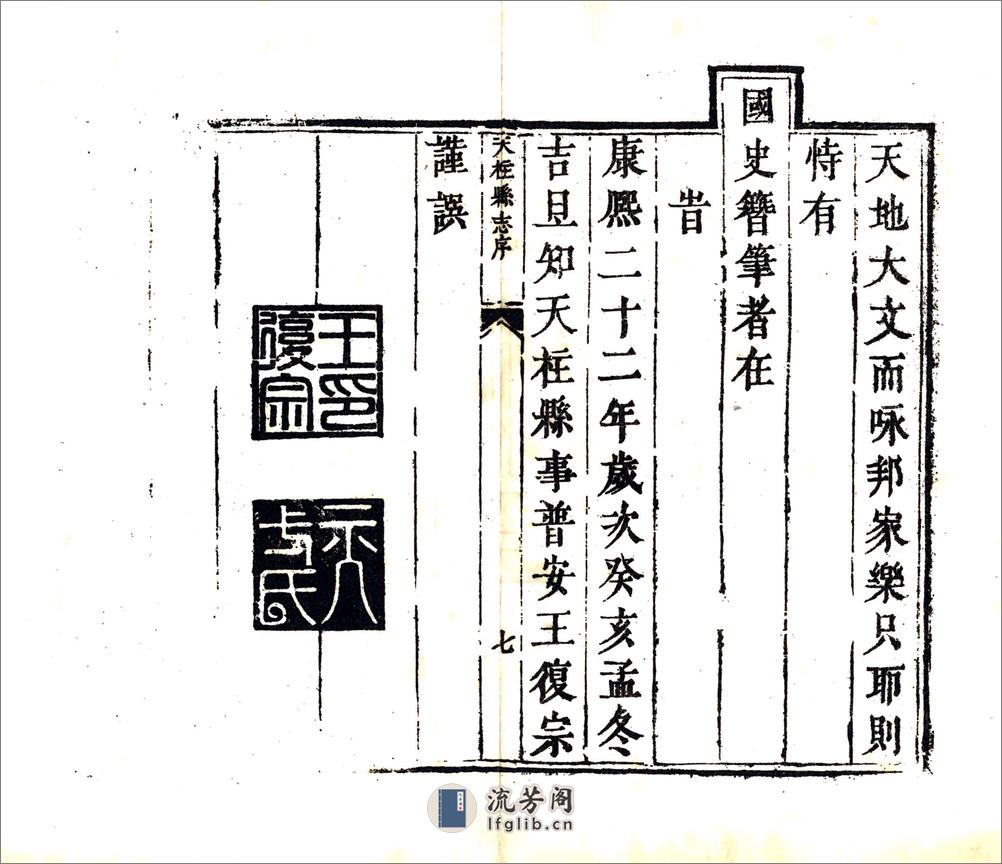 天地大文而咏邦家樂只耶則
恃有
國史簪筆者在
旹
康熙二十二年歲次癸亥孟冬
吉旦知天柱縣事普安王復宗
天柱縣志序
七
謹誤
王印
復宗
流芳阁
lfglib.cn